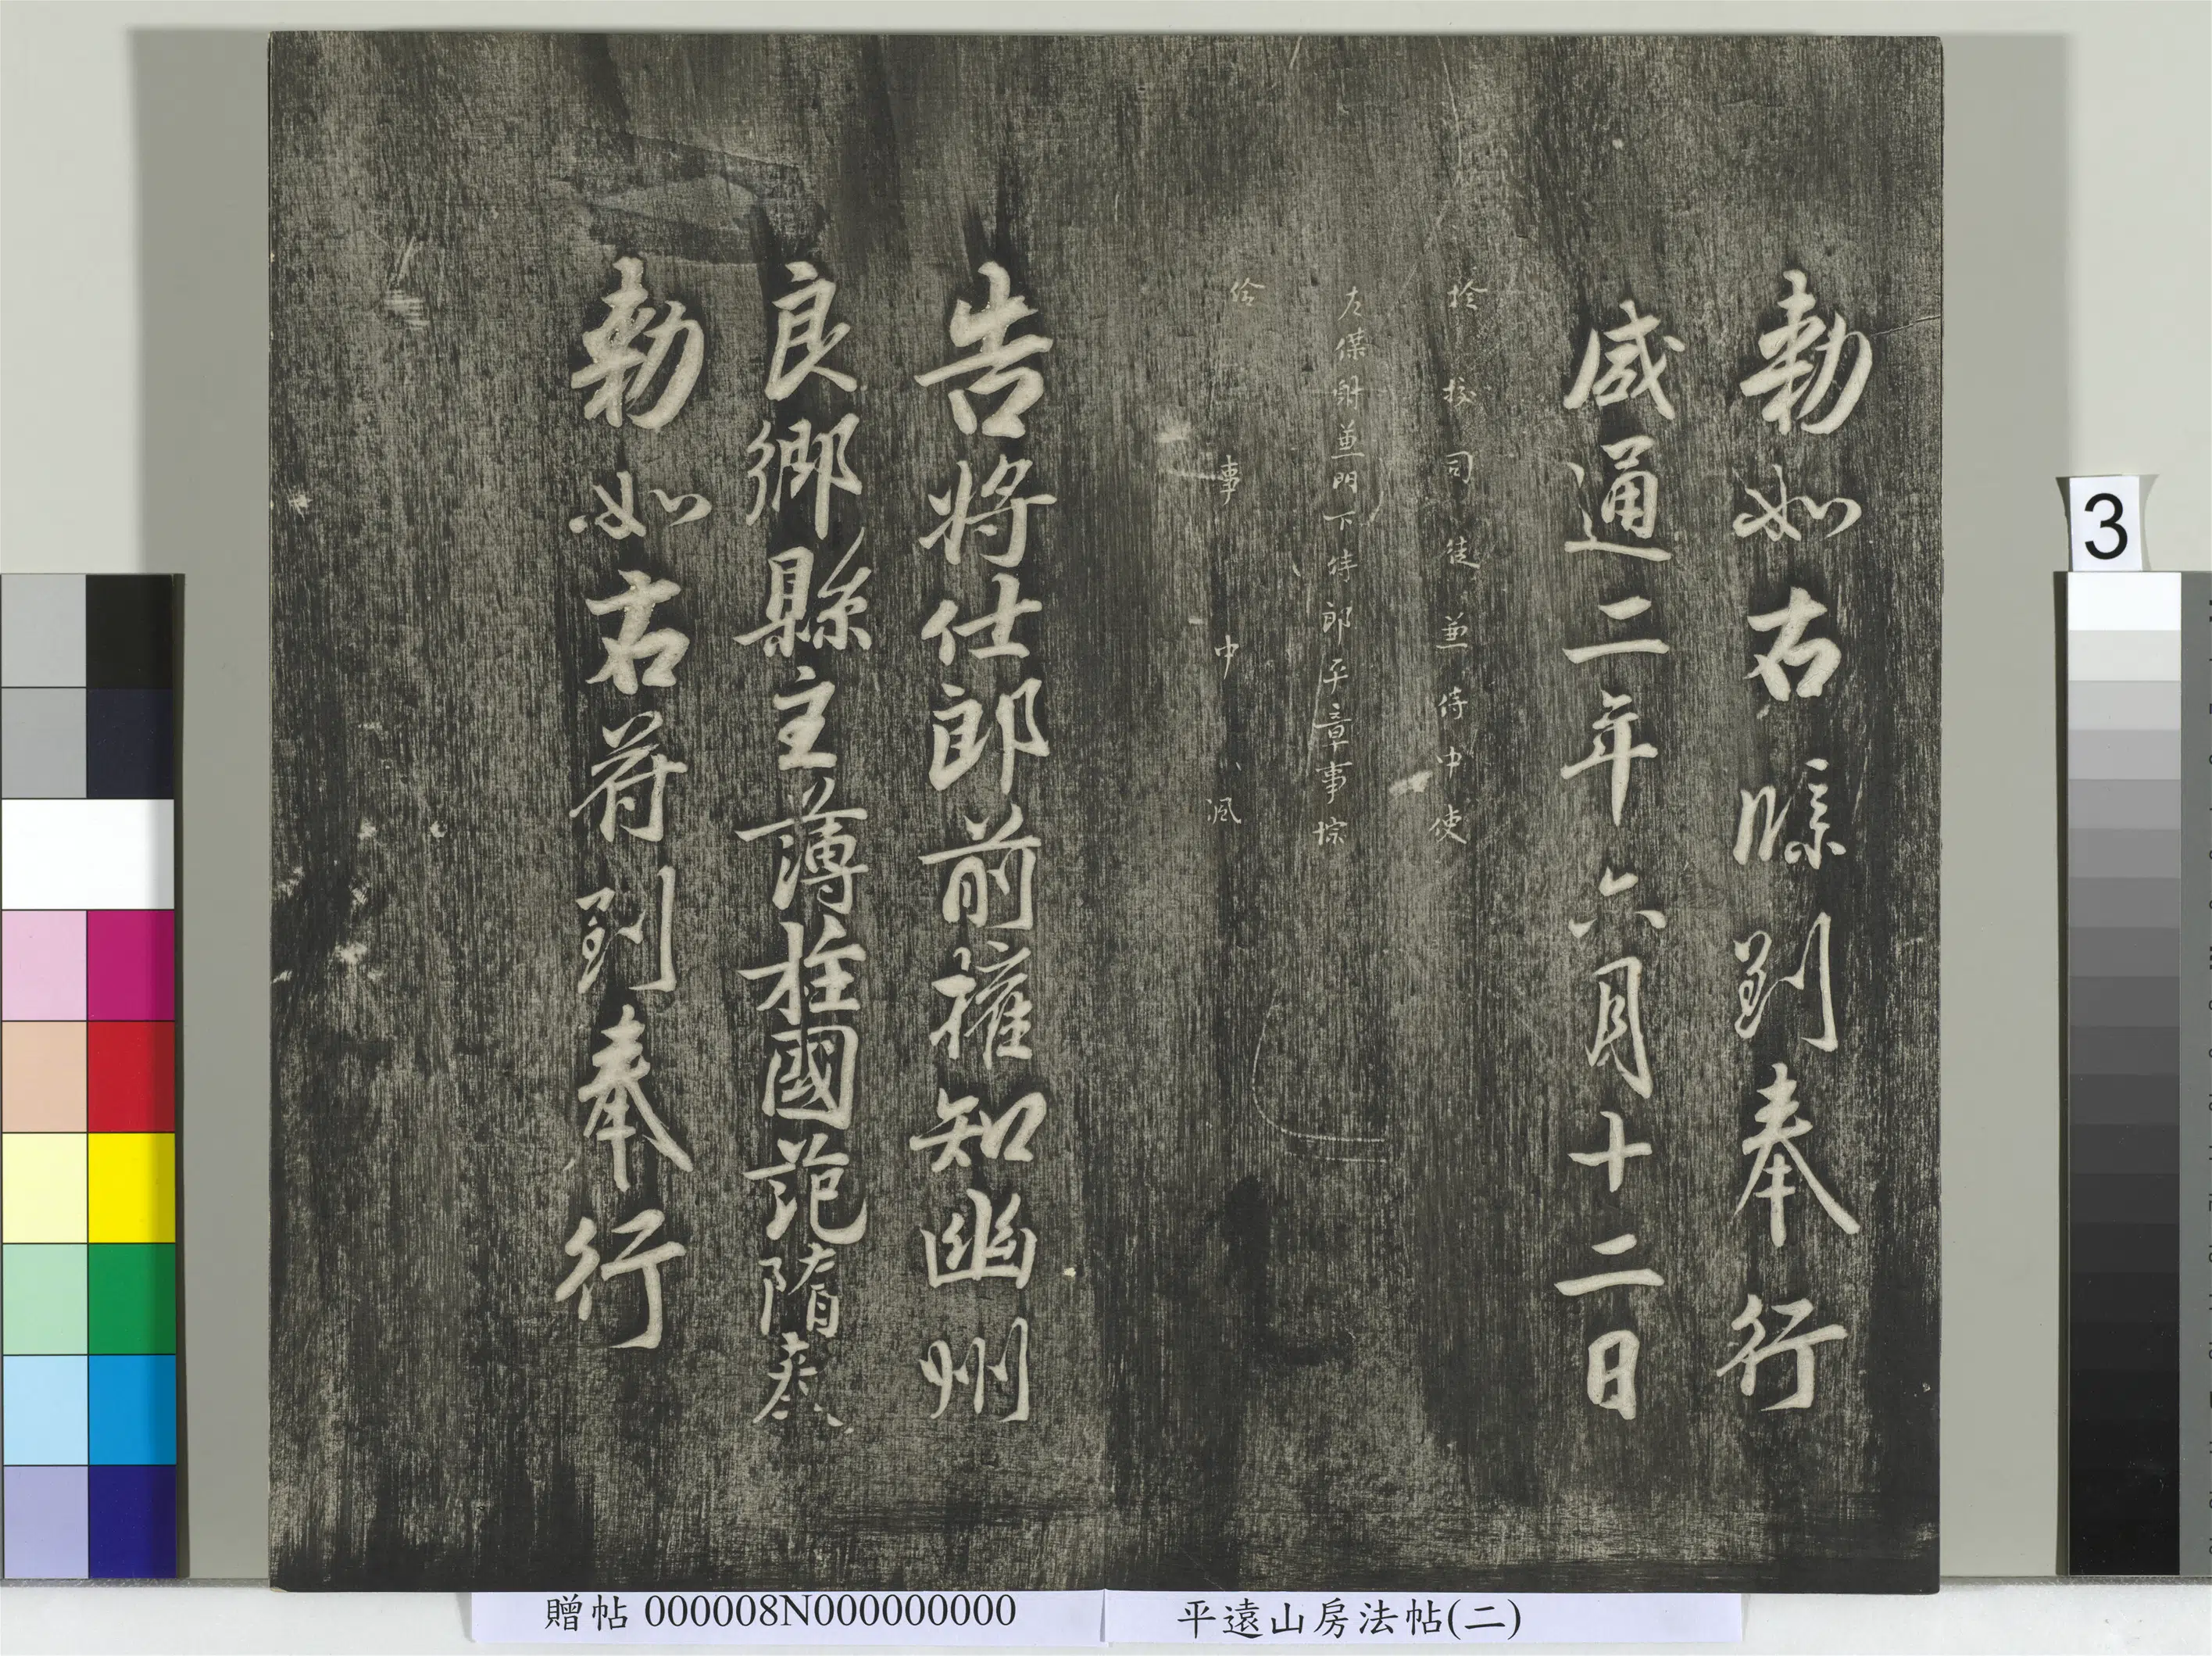 勅如右牒到奉行
咸通二年六月十二日
檢校司徒兼侍中使
左僕射兼門下侍郎平章事悰
給事中渢
告將仕郎前權知幽州
良鄉縣主薄柱國范隋奉
勅如右符到奉行
3
贈帖 000008N000000000
平遠山房法帖(二)